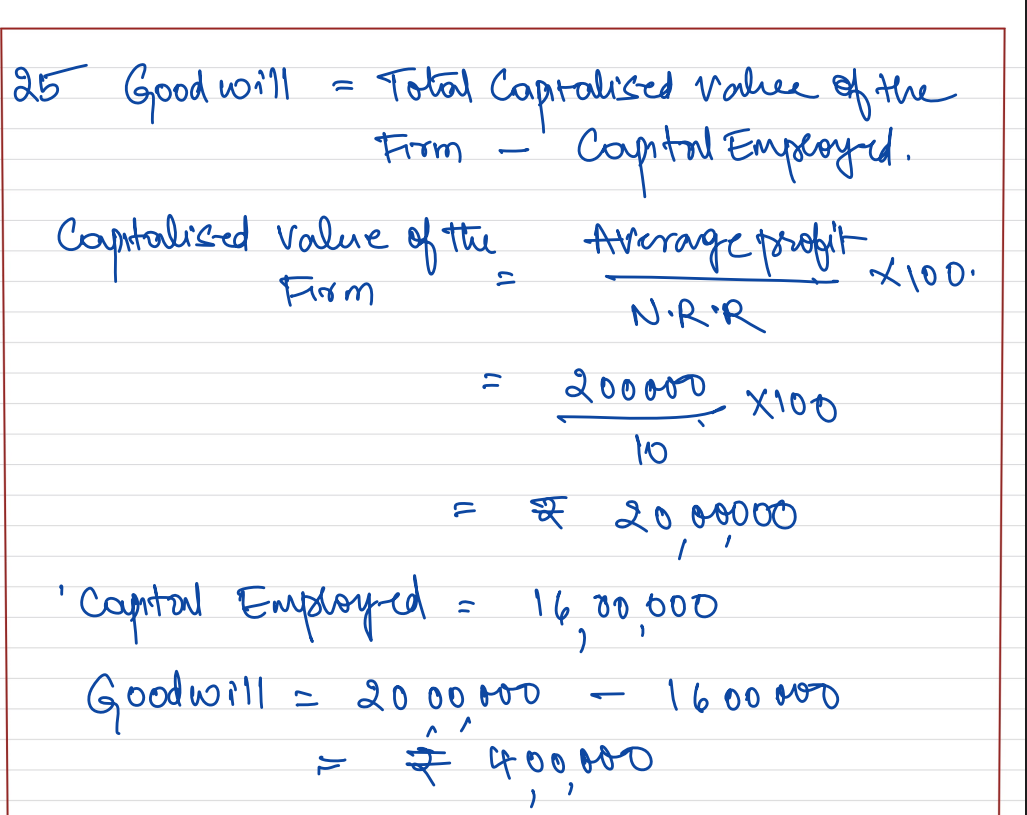 25 Goodwill = Total Capitalised Value of the
Firm – Capital Employed.
Capitalised Value of the Firm = Average profit / N.R.R × 100.
= 200000 / 10 × 100
= ₹ 20,00,000
Capital Employed = 16,00,000
Goodwill = 20,00,000 – 1600000
= ₹ 4,00,000